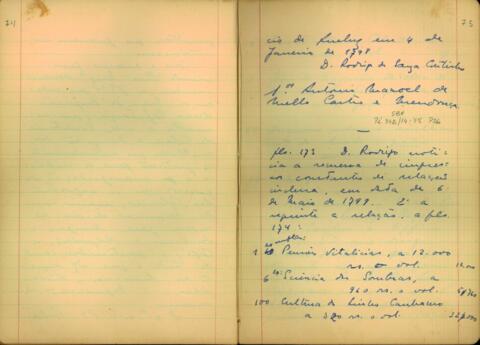 74
75
cio de Queluz em 4 de
Janeiro de 1798
D. Rodrigo de Souza Coutinho
Antonio Manoel de
Mello Castro e Mendonça.
—
fls. 173 D. Rodrigo noti-
cia a remessa de impres-
sos constantes de relação
inclusa, em data de 6
de Maio de 1799. E' a
seguinte a relação, a fls.
174:
Pensões Vitalicias, a 12.000
rs. o vol.
6 Sciencia das Sombras, a
960 rs. o vol.
100 Cultura do Linho Canhamo
a 320 rs. o vol.